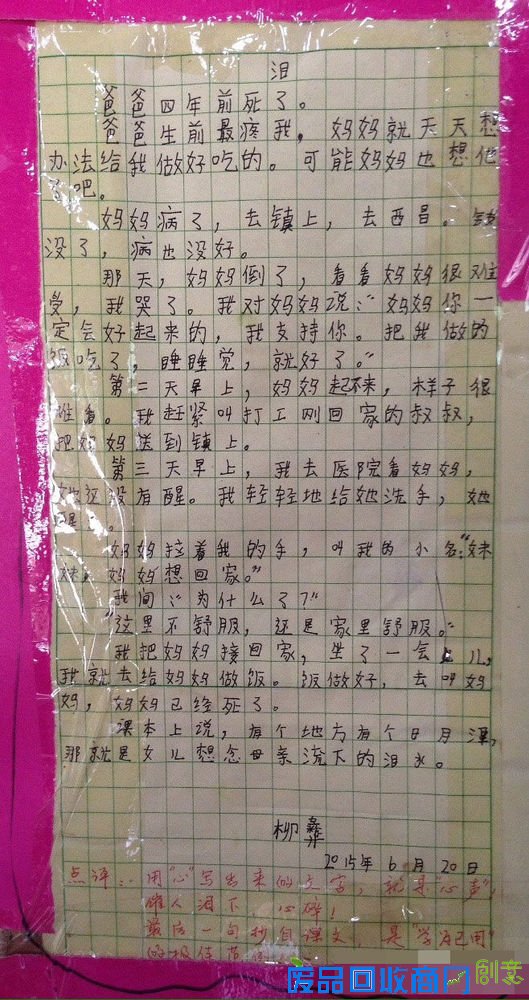 泪
爸爸四年前死了。
爸爸生前最疼我,妈妈就天天想
办法给我做好吃的。可能妈妈也想他
了吧。
妈妈病了,去镇上,去西昌。钱
没了,病也没好。
那天,妈妈倒了,看看妈妈很难
受,我哭了。我对妈妈说:“妈妈你一
定会好起来的,我支持你。把我做的
饭吃了,睡睡觉,就好了。”
第二天早上,妈妈起不来,样子很
难看。我赶紧叫打工刚回家的叔叔,
把妈妈送到镇上。
第三天早上,我去医院看妈妈,
她还没有醒。我轻轻地给她洗手,她
醒了。
妈妈拉着我的手,叫我的小名:“妹
妹,妈妈想回家。”
我问:“为什么了?”
“这里不舒服,还是家里舒服。”
我把妈妈接回家,坐了一会儿,
我就去给妈妈做饭。饭做好,去叫妈
妈,妈妈已经死了。
课本上说,有个地方有个日月潭,
那就是女儿想念母亲流下的泪水。
柳彝
2015年6月20日
点评:用“心”写出来的文字,就是“心声”!
催人泪下 心碎!
最后一句抄自课文,是“学为己用”
的极佳范
废品回收商门
创意